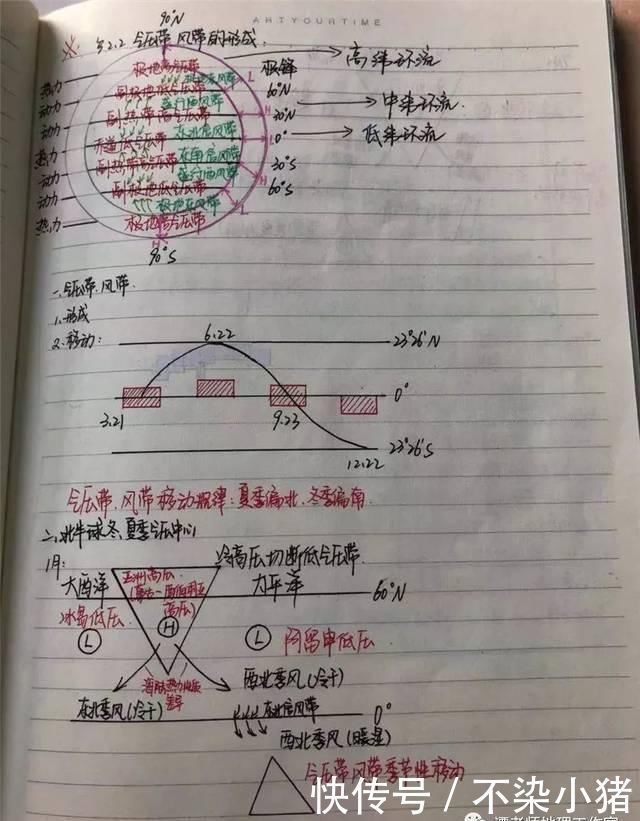 ARTYOURTIME
※ 3.2.2 气压带、风带的形成.
90°N
极地高气压带 极地东风带 极锋
热力
副极地低气压带 60°N
动力 盛行西风带
副热带高气压带 30°N
动力 东北信风带
赤道低气压带 0°
热力 东南信风带
副热带高气压带 30°S
动力 盛行西风带
副极地低气压带 60°S
动力 极地东风带
极地高气压带
热力
90°S
高纬环流
中纬环流
低纬环流
一、气压带、风带.
1.形成
2.移动:
6.22 23°26′N
0°
3.21 9.23
12.22 23°26′S
气压带、风带移动规律:夏季偏北、冬季偏南.
二、北半球冬、夏季气压中心
1月: 冷高压切断低气压带.
大西洋 亚洲高压 太平洋 60°N
(蒙古—西伯利亚高压)
冰岛低压 L H L 阿留申低压
海陆热力性质差异
西北季风(冷干)
东北季风(冷干) 东北信风带 0°
西北季风(暖湿)
气压带风带季节性移动
快传号 / 不染小猪
潭老师地理工作室